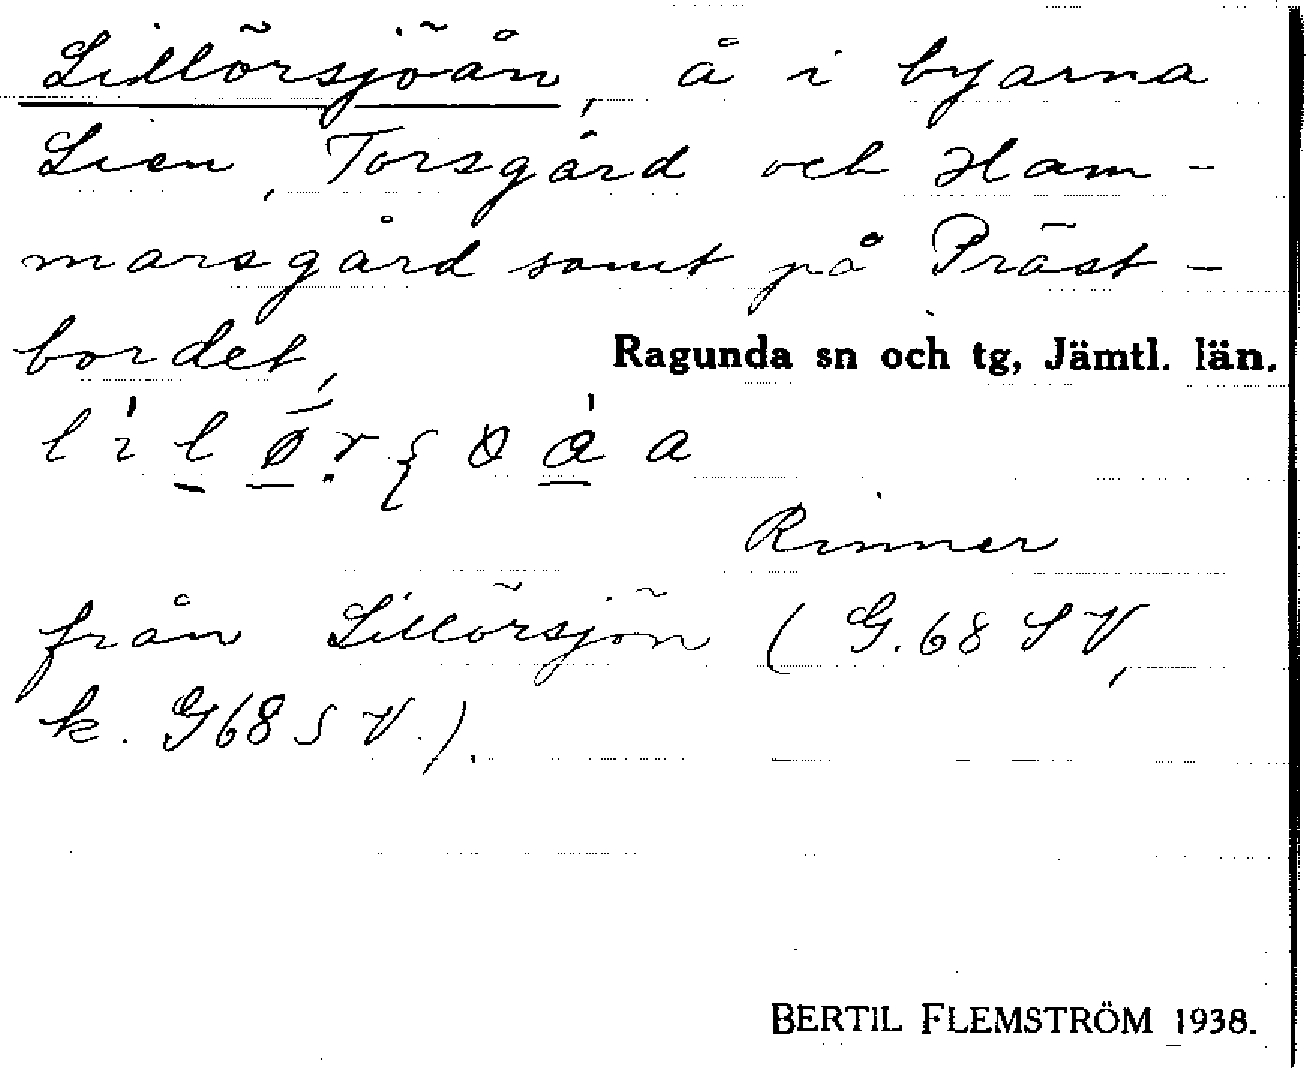 Lillörsjöån, å i byarna
Lien, Torsgård och Ham-
marsgård samt på Präst-
bordet,
Ragunda sn och tg, Jämtl. län.
Rinner
från Lillörsjön (G.68 SV,
k. G68SV.).
BERTIL FLEMSTRÖM 1938.